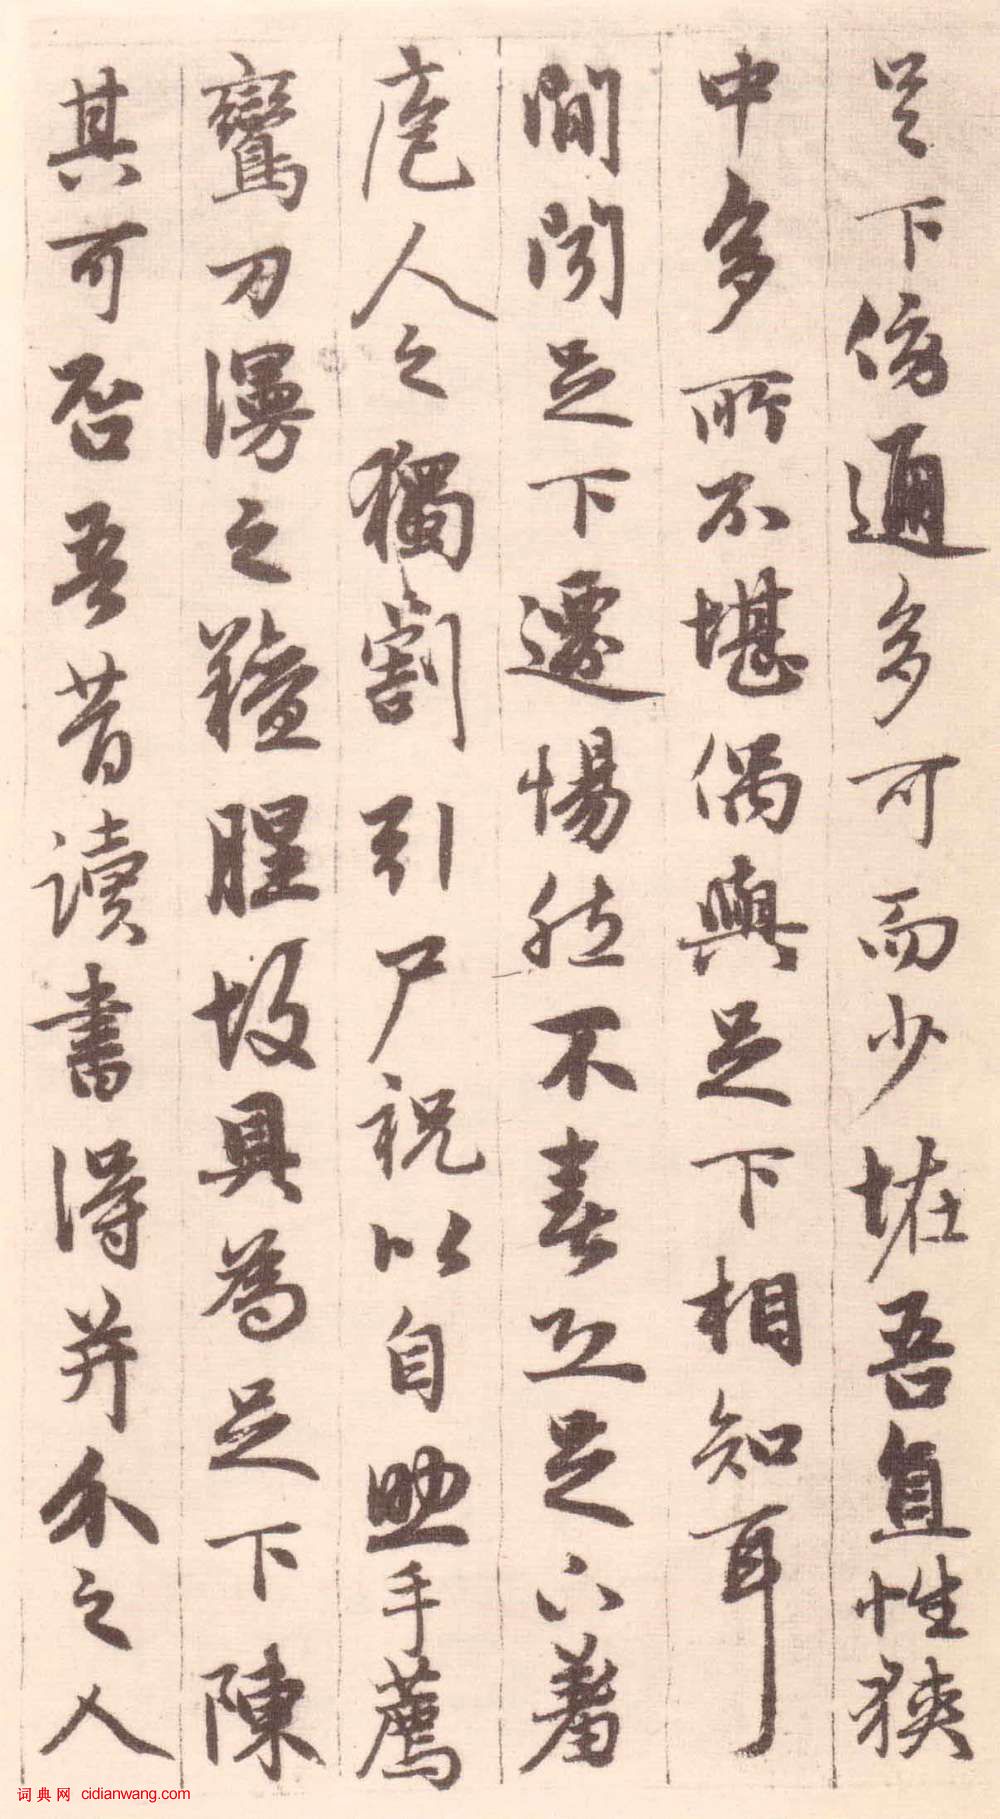 足下傍通多可而少怪吾直性狹
中多所不堪偶與足下相知耳
間聞足下遷惕然不喜恐足下羞
庖人之獨割引尸祝以自助手薦
鸞刀漫之羶腥故具為足下陳
其可否吾昔讀書得并介之人
词典网 cidianwang.com